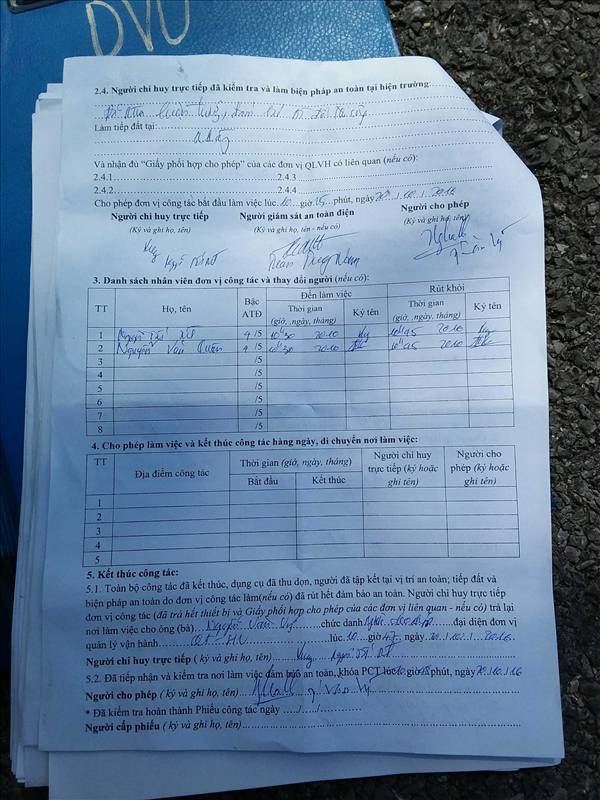 DVO
2.4. Người chỉ huy trực tiếp đã kiểm tra và làm biện pháp an toàn tại hiện trường:
Làm tiếp đất tại:
Và nhận đủ "Giấy phối hợp cho phép" của các đơn vị QLVH có liên quan (nếu có):
2.4.1 2.4.3
2.4.2 2.4.4
Cho phép đơn vị công tác bắt đầu làm việc lúc 10 giờ 15 phút, ngày 20 / 10 / 2016
Người chỉ huy trực tiếp Người giám sát an toàn điện Người cho phép
(Ký và ghi họ, tên) (Ký và ghi họ, tên - nếu có) (Ký và ghi họ, tên)
3. Danh sách nhân viên đơn vị công tác và thay đổi người (nếu có):
TT Họ, tên Bậc ATĐ Đến làm việc Rút khỏi
Thời gian (giờ, ngày, tháng) Ký tên Thời gian (giờ, ngày, tháng) Ký tên
1 4 /5 10h30 20.10 10h45 20.10
2 Nguyễn Văn Quân 4 /5 10h30 20.10 10h45 20.10
3 /5
4 /5
5 /5
6 /5
7 /5
8 /5
4. Cho phép làm việc và kết thúc công tác hàng ngày, di chuyển nơi làm việc:
TT Địa điểm công tác Thời gian (giờ, ngày, tháng) Người chỉ huy trực tiếp (ký hoặc ghi tên) Người cho phép (ký hoặc ghi tên)
Bắt đầu Kết thúc
1
2
3
4
5
5. Kết thúc công tác:
5.1. Toàn bộ công tác đã kết thúc, dụng cụ đã thu dọn, người đã tập kết tại vị trí an toàn; tiếp đất và
biện pháp an toàn do đơn vị công tác làm(nếu có) đã rút hết đảm bảo an toàn. Người chỉ huy trực tiếp
đơn vị công tác (đã trả hết thiết bị và Giấy phối hợp cho phép của các đơn vị liên quan - nếu có) trả lại
nơi làm việc cho ông (bà) Nguyễn Văn chức danh đại diện đơn vị
quản lý vận hành lúc 10 giờ 47, ngày 20 / 10 / 2016
Người chỉ huy trực tiếp ( ký và ghi họ, tên)
5.2. Đã tiếp nhận và kiểm tra nơi làm việc đảm bảo an toàn, khóa PCT lúc giờ phút, ngày 20 / 10 / 16
Người cho phép ( ký và ghi họ, tên)
* Đã kiểm tra hoàn thành Phiếu công tác ngày ...../...../.....
Người cấp phiếu ( ký và ghi họ, tên)